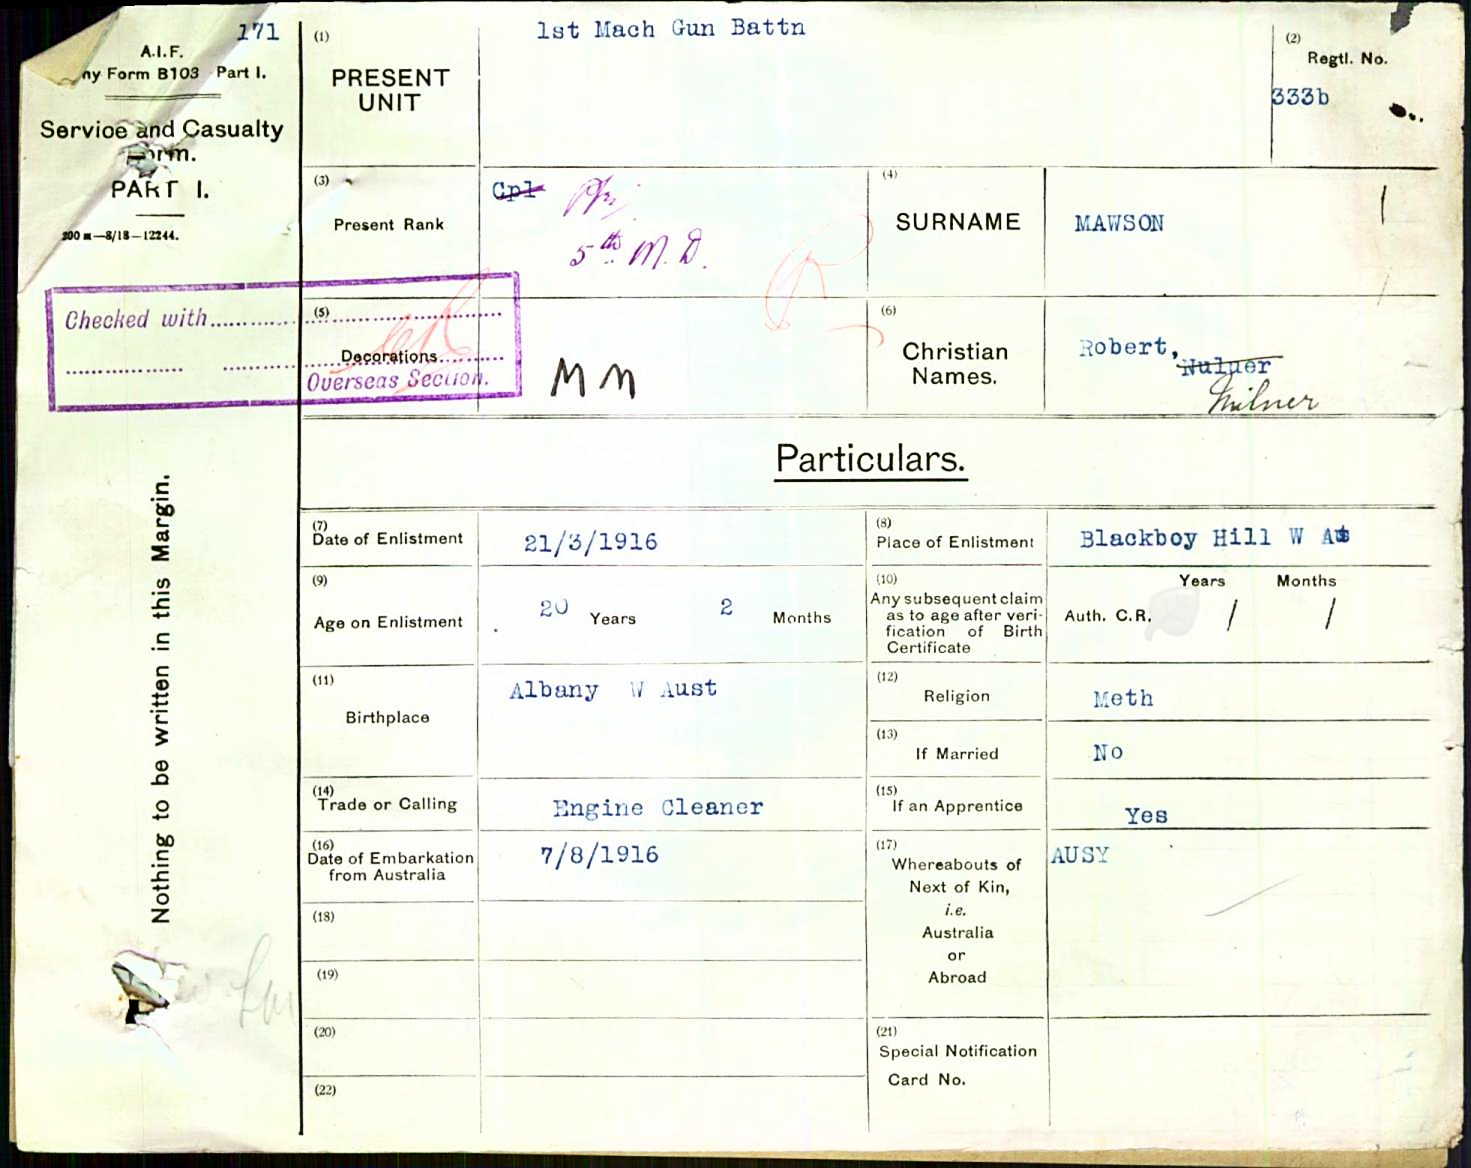 171
A.I.F.
ny Form B103 Part I.
Service and Casualty
Form.
PART I.
200 m—8/18—12244.
Checked with
Overseas Section.
Nothing to be written in this Margin.
(1)
PRESENT
UNIT
1st Mach Gun Battn
(2)
Regtl. No.
333b
(3)
Present Rank
Cpl
5th M. D.
(4)
SURNAME
MAWSON
(5)
Decorations
M M
(6)
Christian
Names.
Robert,
Nulner
Milner
Particulars.
(7)
Date of Enlistment
21/3/1916
(8)
Place of Enlistment
Blackboy Hill W Aus
(9)
Age on Enlistment
20 Years 2 Months
(10)
Any subsequent claim
as to age after veri-
fication of Birth
Certificate
Years Months
Auth. C.R. / /
(11)
Birthplace
Albany W Aust
(12)
Religion
Meth
(13)
If Married
No
(14)
Trade or Calling
Engine Cleaner
(15)
If an Apprentice
Yes
(16)
Date of Embarkation
from Australia
7/8/1916
(17)
Whereabouts of
Next of Kin,
i.e.
Australia
or
Abroad
AUSY
(18)
(19)
(20)
(21)
Special Notification
Card No.
(22)